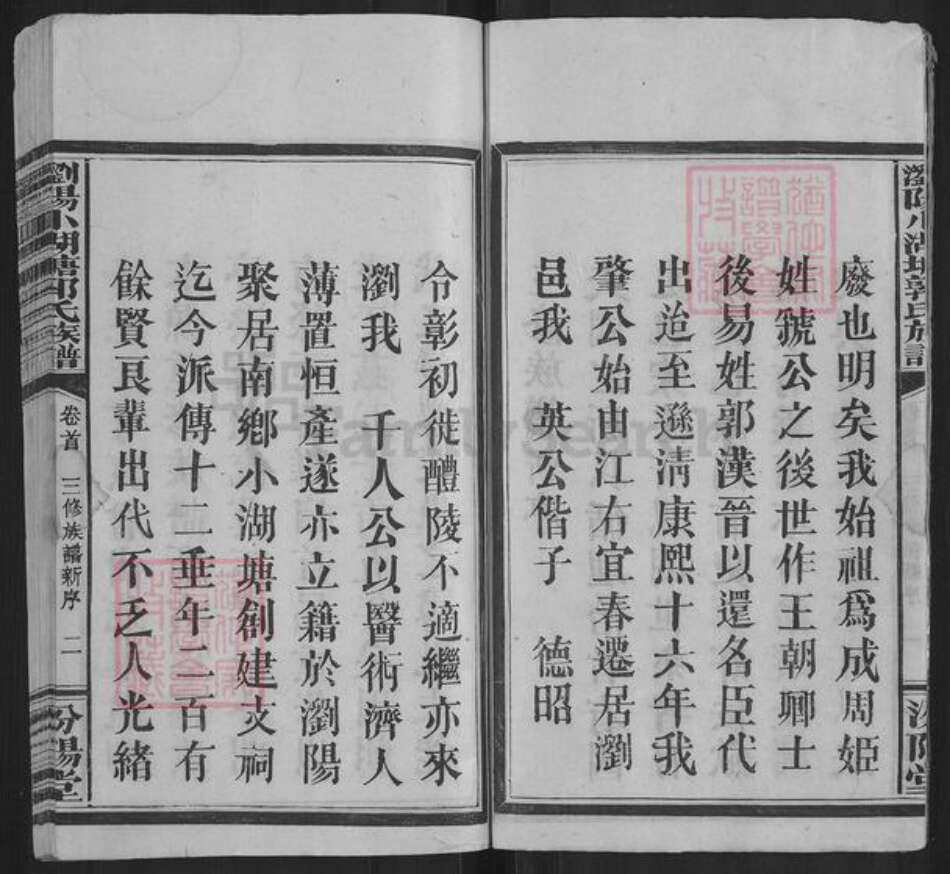 廢也明矣我始祖爲成周姬
姓虢公之後世作王朝卿士
後易姓郭漢晉以還名臣代
出迨至遜淸康熙十六年我
肇公始由江右宜春遷居瀏
邑我 英公偕子 德昭
令彰初徙醴陵不適繼亦來
瀏我 千人公以醫術濟人
薄置恒產遂亦立籍於瀏陽
聚居南鄉小湖塘創建支祠
迄今派傳十二垂年二百有
餘賢良輩出代不乏人光緒
瀏陽小湖塘郭氏族譜
卷首
三修族譜新序
二
汾陽堂